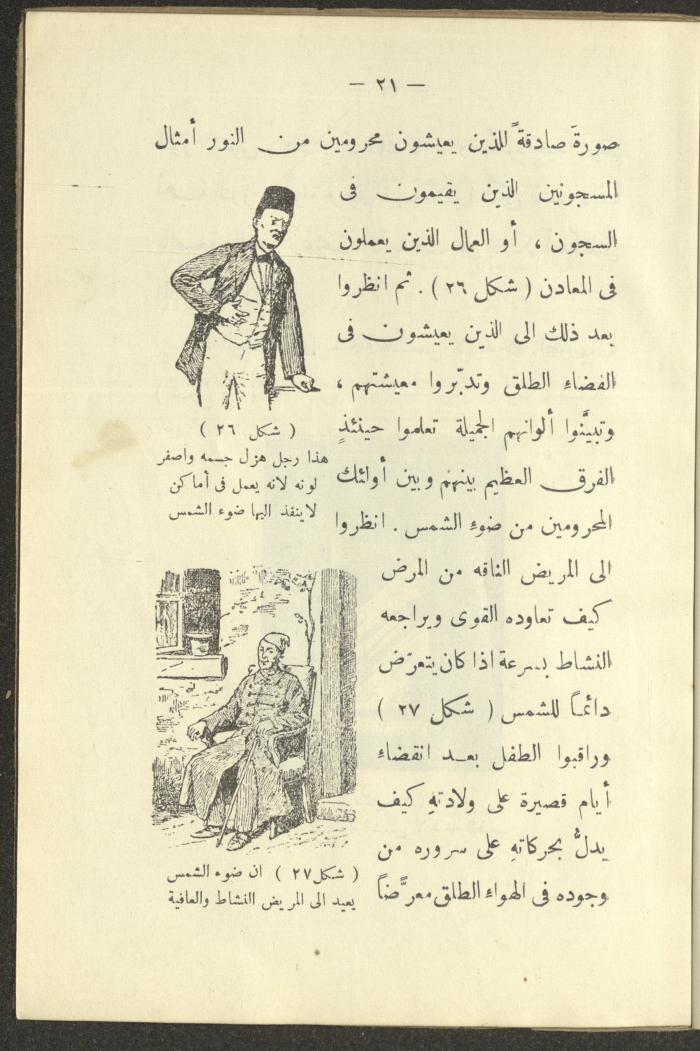 — ٢١ —
صورةَ صادقةً للذين يعيشون محرومين من النور أمثال
المسجونين الذين يقيمون فى
السجون ، أو العمال الذين يعملون
فى المعادن ( شكل ٢٦ ) . ثم انظروا
بعد ذلك الى الذين يعيشون فى
الفضاء الطلق وتدبّروا معيشتهم ،
وتبيَّنوا ألوانهم الجميلة تعلموا حينئذٍ
الفرق العظيم بينهم وبين أولئك
المحرومين من ضوء الشمس . انظروا
الى المريض الناقه من المرض
كيف تعاوده القوى ويراجعه
النشاط بسرعة اذا كان يتعرّض
دائماً للشمس ( شكل ٢٧ )
وراقبوا الطفل بعد انقضاء
أيام قصيرة على ولادتهِ كيف
يدلُّ بحركاتهِ على سروره من
وجوده فى الهواء الطلق معرَّضاً
( شكل ٢٦ )
هذا رجل هزل جسمه واصفر
لونه لانه يعمل فى أماكن
لاينفذ اليها ضوء الشمس
( شكل ٢٧ ) ان ضوء الشمس
يعيد الى المريض النشاط والعافية